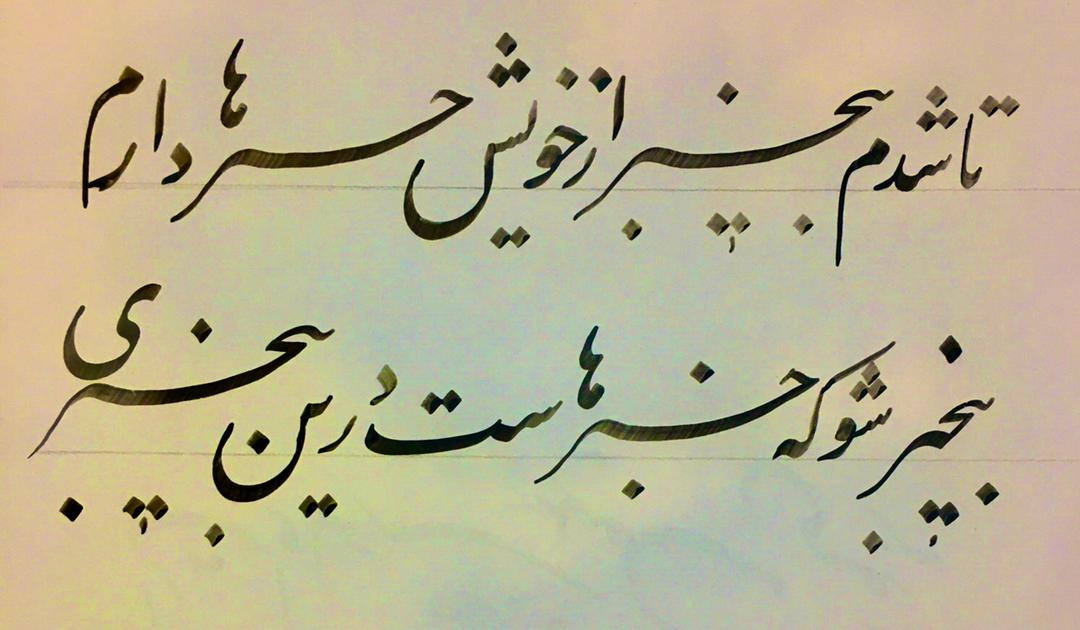 تا شدم بیخبر از خویش خبرها دارم
بیخبر شو که خبرهاست درین بیخبری